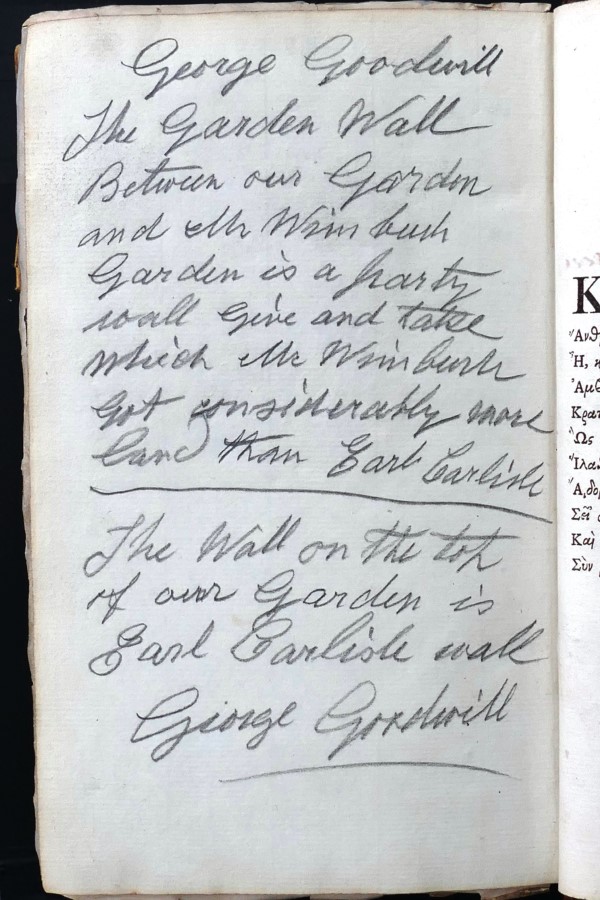 George Goodwill
The Garden Wall
Between our Garden
and Mr Wimbush
Garden is a party
wall Give and take
which Mr Wimbush
Got considerably more
land than Earl Carlisle
The Wall on the top
of our Garden is
Earl Carlisle wall
George Goodwill
K
Ἀμφ
Κρατ
Ὣς
Σοῖ
Καὶ
Σὺν